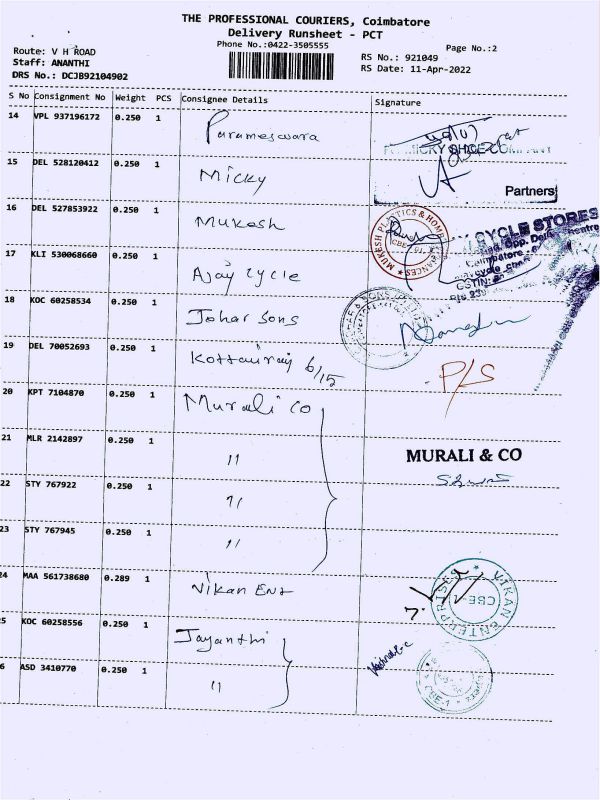 THE PROFESSIONAL COURIERS, Coimbatore
Delivery Runsheet - PCT
Phone No.:0422-3505555
Page No.:2
Route: V H ROAD
Staff: ANANTHI
DRS No.: DCJB92104902
RS No.: 921049
RS Date: 11-Apr-2022
S No Consignment No Weight PCS Consignee Details Signature
14 VPL 937196172 0.250 1 Parameswara
MICKY SHOE COMPANY
15 DEL 528120412 0.250 1 Micky
Partners
16 DEL 527853922 0.250 1 Mukesh
MUKESH PLASTICS & HOME APPLIANCES
CYCLE STORES
Coimbatore
17 KLI 530068660 0.250 1 Ajay cycle
GSTIN:
18 KOC 60258534 0.250 1 Johar Sons
19 DEL 70052693 0.250 1 6/15
P/S
20 KPT 7104870 0.250 1 Murali co
21 MLR 2142897 0.250 1 "
MURALI & CO
22 STY 767922 0.250 1 "
23 STY 767945 0.250 1 "
24 MAA 561738680 0.289 1 Vikan Ent
VIKAN ENTERPRISES
CBE-1
25 KOC 60258556 0.250 1 Jayanthi
26 ASD 3410770 0.250 1 "
CBE-1